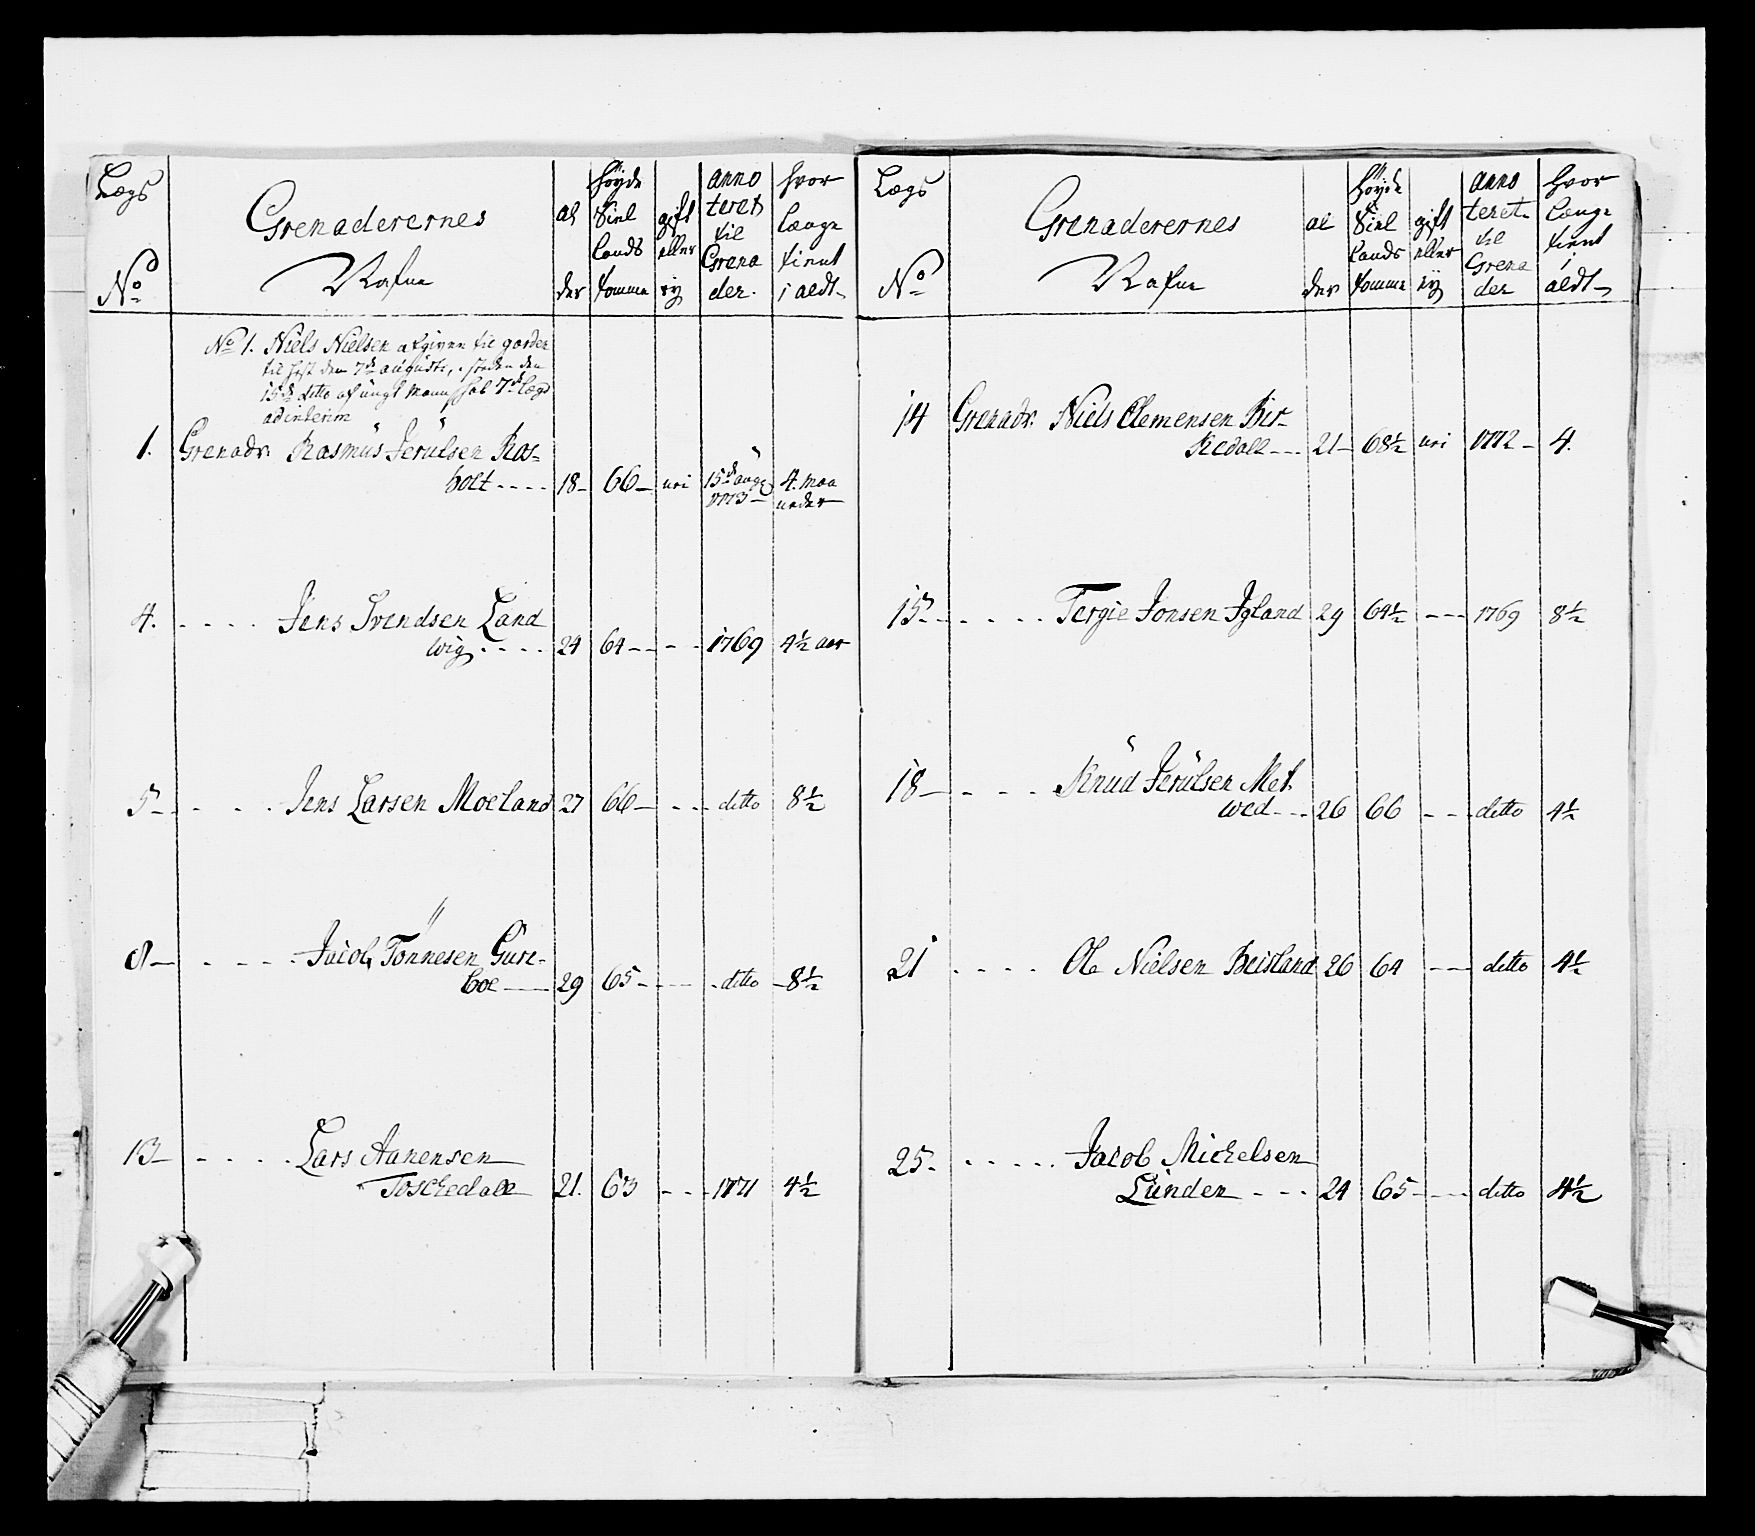 Lægs
No
Grenaderernes
Nafne
al
der
høyde
Siel
lands
tomme
gift
eller
ey
anno
teret
til
Grena
der.
hvor
længe
tient
i aldt
No 1. Niels Nielsen afgiven til garden
til fest den 7de august, i steden den
15de ditto af ungt Mandskab 7de lægd
ad interim
1. Grenadr. Rasmus Jerulsen Ras-
holt .... 18- 66- nei 15de aug 1773- 4. maa
neder
4. .... Jens Svendsen Land
wig .... 24 64 - - - 1769 4½ aar
5- .... Jens Larsen Moeland 27 66 - - - ditto 8½
8- .... Jacob Tönnesen Gure-
boe 29 65 - - - ditto 8½
13- .... Lars Aanensen
Toschedall 21. 63 - - - 1771 4½
Lægs
No
Grenaderernes
Nafne
al
der
høyde
Siel
lands
tomme
gift
eller
ey
anno
teret
til
Grena
der
hvor
længe
tient
i
aldt
14 Grenadr. Niels Clemensen Bir-
kedall --- 21- 68½ nei 1772- 4.
15- .... Tergie Jonsen Igland 29 64½ --- 1769 8½
18- .... Knud Jerulsen Met
wed --- 26 66 --- ditto 4½
21 .... Ole Nielsen Beisland 26 64 --- ditto 4½
25. .... Jacob Michelsen
Lunden --- 24 65 --- ditto 4½